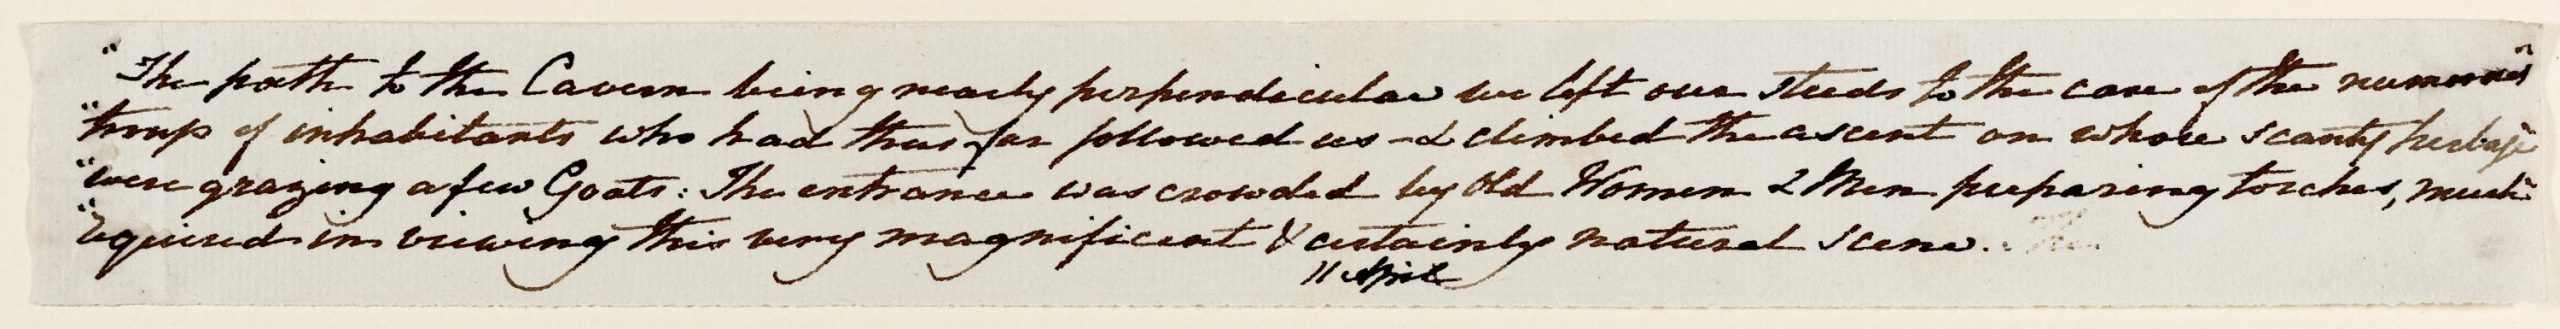 "The path to the Cavern being nearly perpendicular we left our steeds to the care of the numerous"
"troup of inhabitants who had thus far followed us & climbed the ascent on whose scanty herbage
"were grazing a few Goats: The entrance was crowded by Old Women & Men preparing torches, much
"required in viewing this very magnificent & certainly natural scene.
11 April